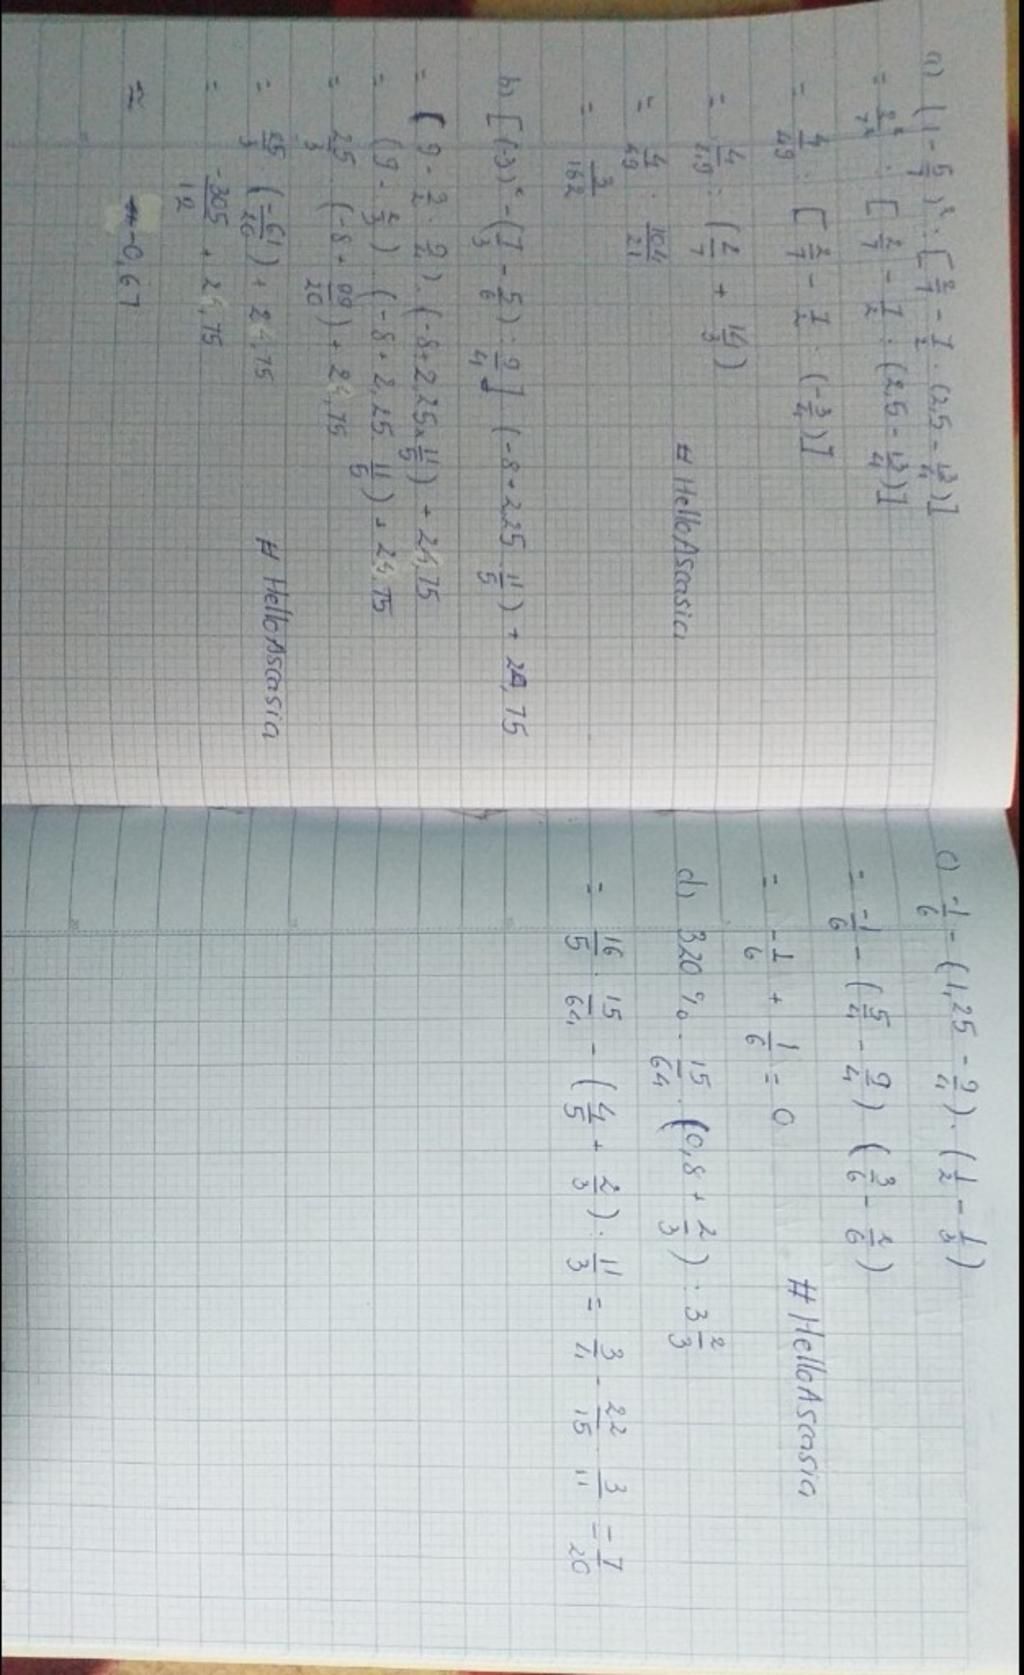 a) (1 - 5/7)² : [2/7 - 1/2 : (2,5 - 13/4)]
= 2²/7² : [2/7 - 1/2 : (2,5 - 13/4)]
= 4/49 : [2/7 - 1/2 : (-3/4)]
= 4/49 : (2/7 + 14/3)
= 4/49 : 104/21
= 3/162
# HelloAscasia
b) [(-3)² - (7/3 - 5/6) : 9/4] (-8 + 2,25 11/5) + 24,75
= (9 - 3/2 : 9/4) . (-8 + 2,25 × 11/5) + 24,75
= (9 - 2/3) . (-8 + 2,25 11/5) + 24,75
= 25/3 . (-8 + 99/20) + 24,75
= 25/3 (-61/20) + 24,75
= -305/12 + 24,75
≈ -0,67
# HelloAscasia
c) -1/6 - (1,25 - 9/4) . (1/2 - 1/3)
= -1/6 - (5/4 - 9/4) (3/6 - 2/6)
= -1/6 + 1/6 = 0
# HelloAscasia
d) 320 % . 15/64 . (0,8 + 2/3) : 3 2/3
= 16/5 . 15/64 - (4/5 + 2/3) : 11/3 = 3/4 - 22/15 3/11 = 7/20